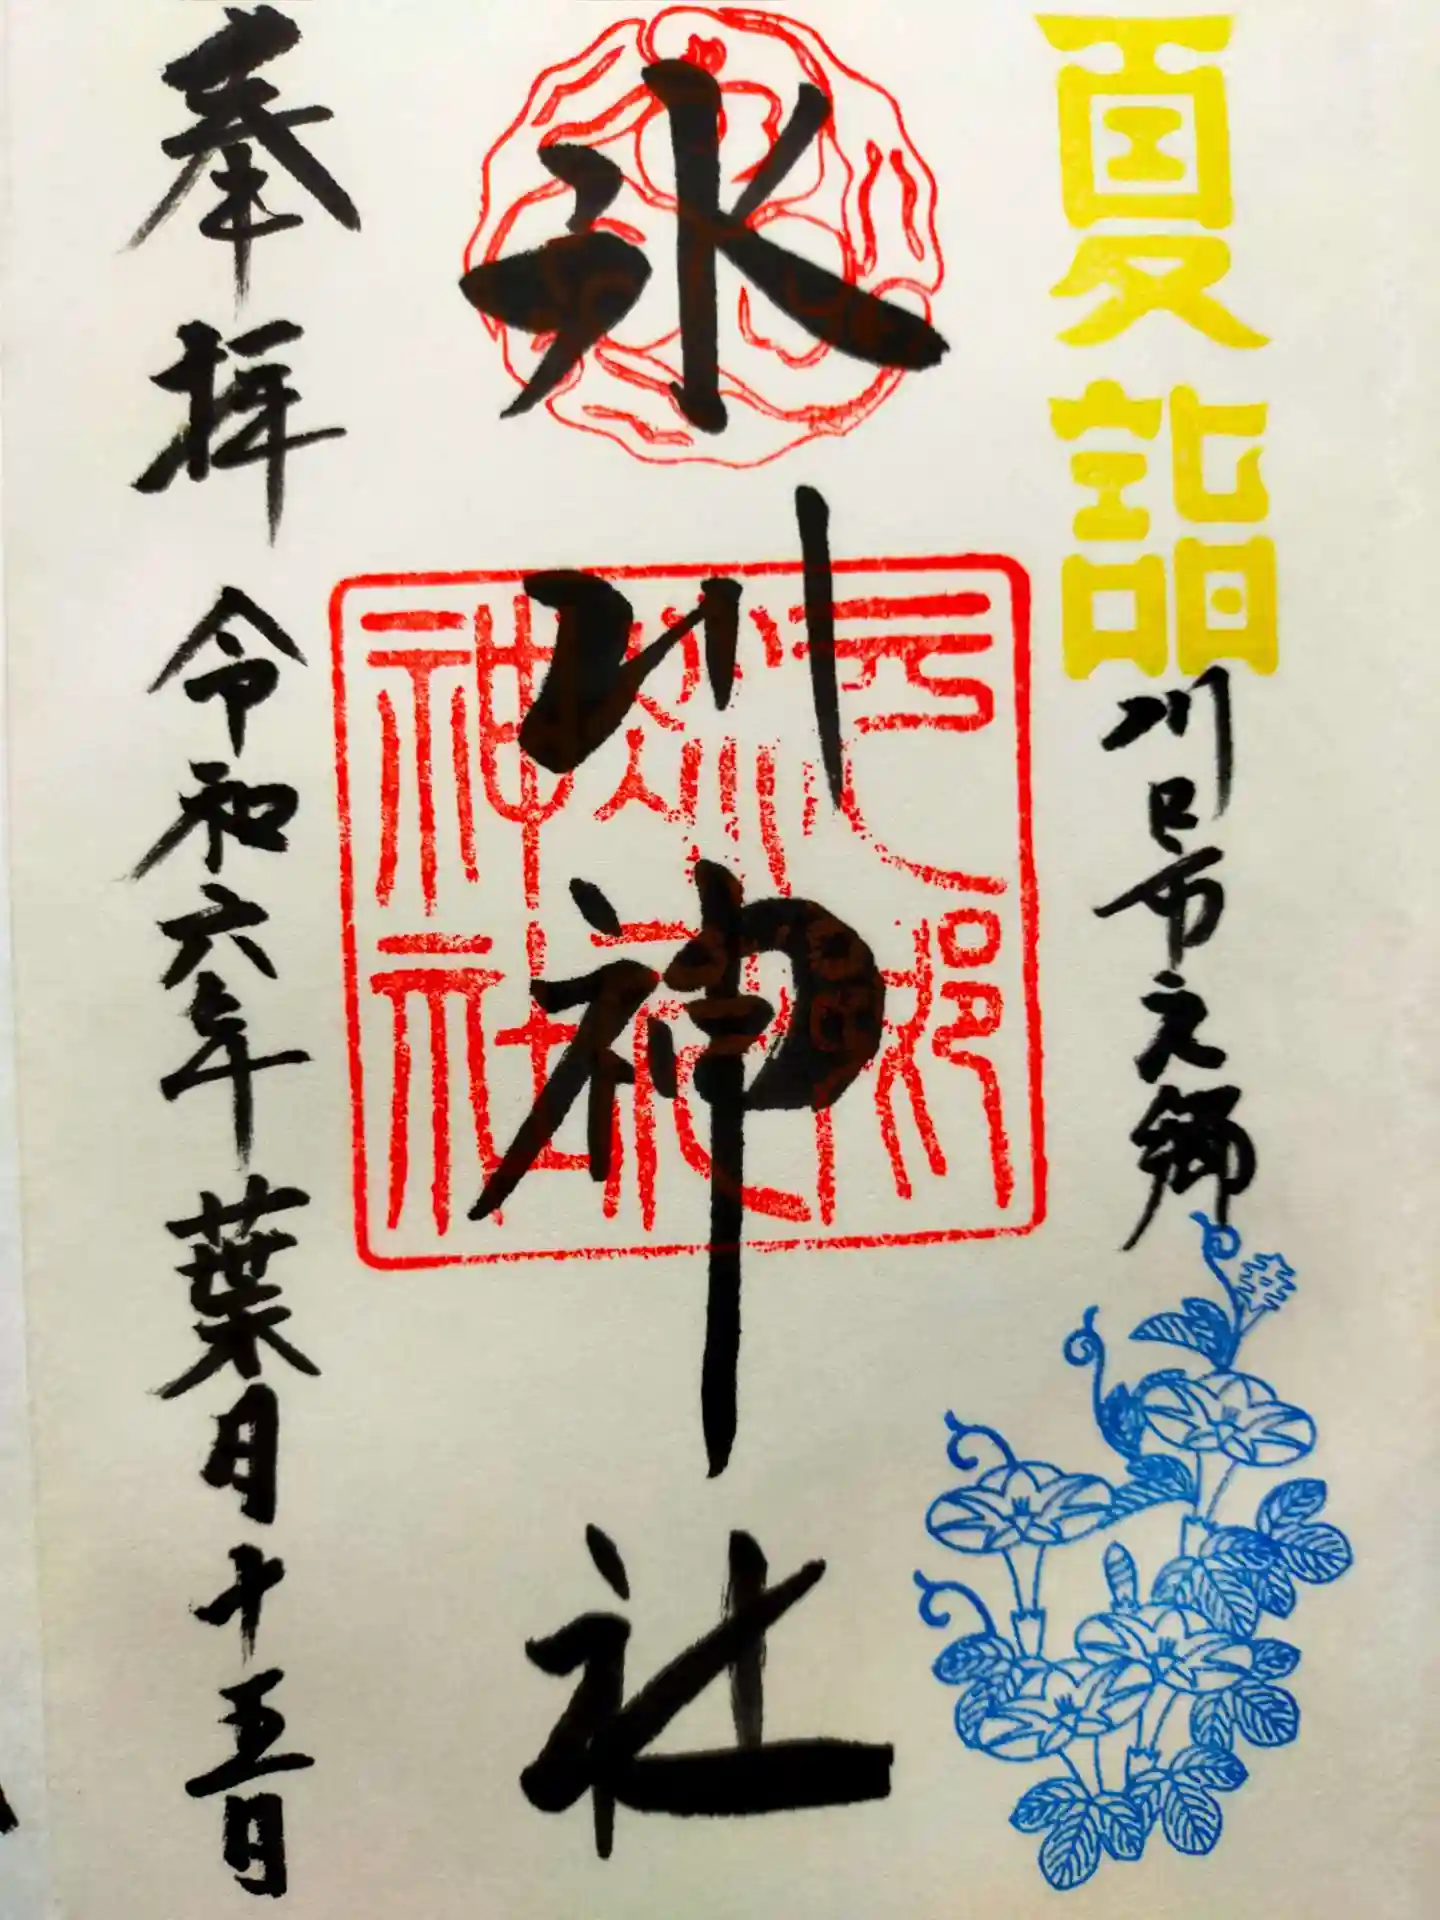 夏詣
川口市元郷
氷川神社
奉拝
令和六年葉月十五日
元郷
神社